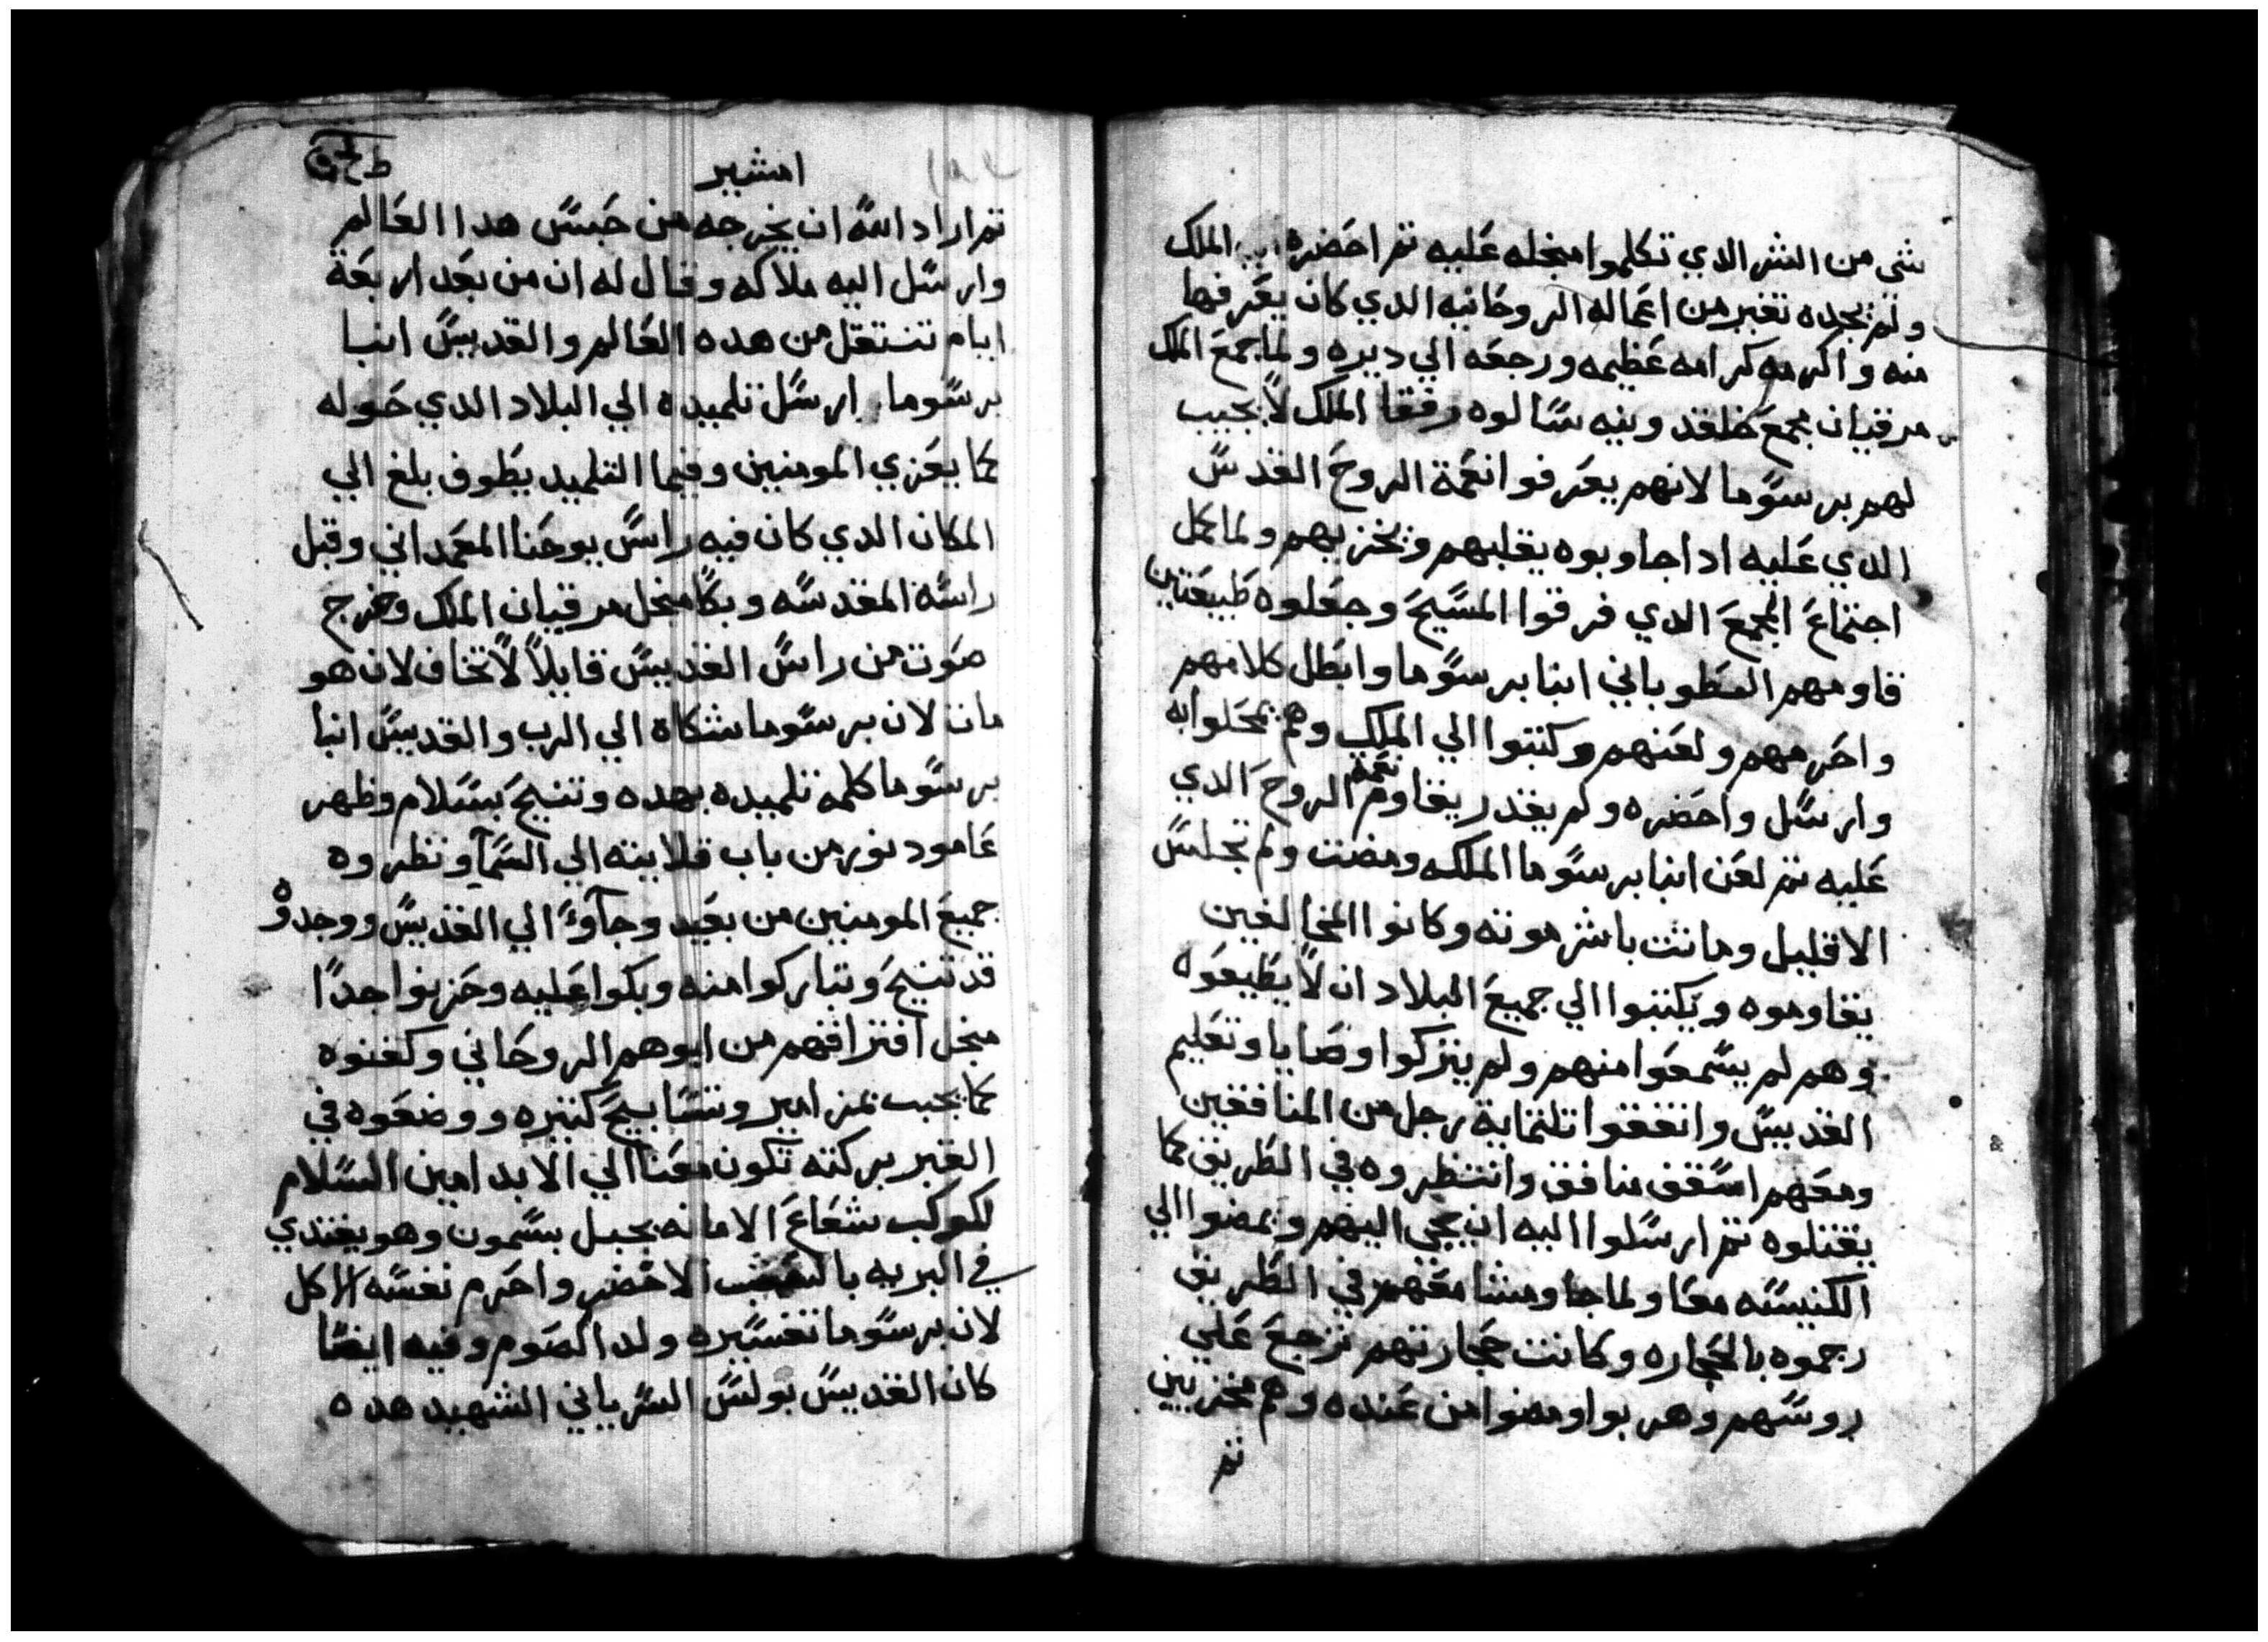 شى من الشر الدي تكلموا منجله عليه تم احضره الملك
ولم يجده تغير من اعماله الروحانيه الدي كان يعرفها
منه واكرمه كرامه عظيمه ورجعه الي ديره ولما جمع الملك
مرقيان مجمع خلقدونيه سالوه رفقا الملك لا يجيب
لهم برسوما لانهم يعرفوا نعمة الروح القدس
الدي عليه ادا جاوبوه يغلبهم ويخزيهم ولما كمل
اجتماع المجمع الدي فرقوا المسيح وجعلوه طبيعتين
قاومهم الطوباني انبا برسوما وابطل كلامهم
واحرمهم ولعنهم وكتبوا الي الملك وهم يمحلوا به
وارسل واحضره ولم يقدر يقاوم نعمة الروح الدي
عليه تم لعن انبا برسوما الملكه ومضت ولم تجلس
الا قليل وماتت باشر موته وكانوا المخالفين
يقاوموه ويكتبوا الي جميع البلاد ان لا يطيعوه
وهم لم يسمعوا منهم ولم يتركوا وصايا وتعليم
القديس واتفقوا تلتماية رجل من المنافقين
ومعهم اسقف منافق وانتظروه في الطريق كما
يقتلوه تم ارسلوا اليه ان يجي اليهم ويمضوا الي
الكنيسه معا ولما جا ومشا معهم في الطريق
رجموه بالحجاره وكانت حجارتهم ترجع علي
روسهم وهربوا ومضوا من عنده وهم مخزيين
تم
امشير
تم اراد الله ان يخرجه من حبس هدا العالم
وارسل اليه ملاكه وقال له ان من بعد اربعة
ايام تنتقل من هده العالم والقديس انبا
برسوما ارسل تلميده الي البلاد الدي حوله
كما يعزي المومنين وفيما التلميد يطوف بلغ الي
المكان الدي كان فيه راس يوحنا المعمداني وقبل
راسه المقدسه وبكا منجل مرقيان الملك وخرج
صوت من راس القديس قايلا لا تخاف لان هو
مات لان برسوما شكاه الي الرب والقديس انبا
برسوما كلم تلميده بهده وتنيح بسلام وظهر
عامود نور من باب قلايته الي السمآ ونظروه
جميع المومنين من بعيد وجآوا الي القديس ووجدوه
قد تنيح وتباركوا منه وبكوا عليه وحزنوا جدا
منجل افتراقهم من ابوهم الروحاني وكفنوه
كما يجب بمزامير وتسابيح كتيره ووضعوه في
القبر بركته تكون معنا الي الابد امين السلام
لكوكب شعاع الامانه بجبل بسمون وهو يغتدي
في البريه بالعشب الاخضر واحرم نفسه الاكل
لان برسوما تفسيره ولد الصوم وفيه ايضا
كان القديس بولس السرياني الشهيد هده